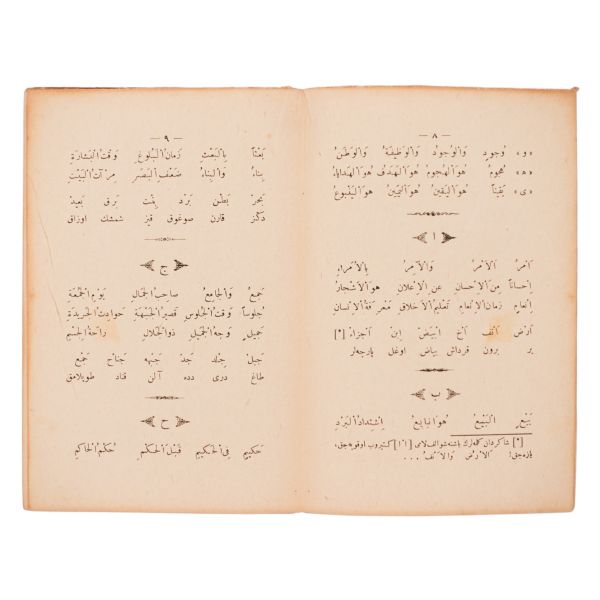 — ٨ —
«و» وُجودٍ وَالْوُجودُ وَالْوَظيفَةُ وَالْوَطَنُ
«ه» هُجومُ هُوَ الْهُجومُ هُوَ الْهَدَفُ هُوَ الْهَدايا
«ى» يَقيناً هُوَ الْيَقينُ هُوَ الْيَمينُ هُوَ الْيَنْبوعُ
ا
اَمْرُ اَلْاَمْرُ وَالْاَمْرُ بِالْاَفْرادِ
اِحْساناً مِنَ الْاِحْسانِ عَنِ الْاِعْلانِ هُوَ الْاَشْجارُ
اِنْعامٍ زَمانُ الْاِنْعامِ تَعْليمُ الْاَخْلاقِ مَعْرِفَةُ الْاِنْسانِ
اَرْضْ اَنْفْ اَخْ اَبْيَضْ اِبْنْ اَجْزاءْ [*]
ير برون قرداش بياض اوغل پارچه‌لر
ب
بَيْعٍ اَلْبَيْعُ هُوَ الْبايِعُ اِشْتِدادُ الْبَرْدِ
[*] شاكردان كلمه‌لرك باشنه شو الف لامى [ا ل] كتيروب اوقويه‌جق،
يازه‌جق: اَلْاَرْضُ وَالْاَنْفُ . . .
— ٩ —
بَعْثاً بِالْبَعْثِ زَمانُ الْبُلوغِ وَقْتُ الْبَشارَةِ
بِناءُ وَالْبِناءُ ضَعْفُ الْبَصَرِ مِرْآتُ الْبَيْتِ
بَحْرْ بَطْنْ بَرْدْ بِنْتْ بَرْقْ بَعيدْ
دكز قارن صوغوق قيز شمشك اوزاق
ج
جَمِيعُ وَالْجامِعُ صاحِبُ الْجَمالِ يَوْمُ الْجُمْعَةِ
جُلوساً وَقْتُ الْجُلوسِ قَصيرُ الْجَبْهَةِ حَوادِثُ الْجَريدَةِ
جَميلٍ وَجْهُ الْجَميلِ ذُو الْجَلالِ راحَةُ الْجِسْمِ
جَبَلْ جِلْدْ جَدْ جَبْهَه جَناحْ جَمْعْ
طاغ درى دده آلن قناد طوپلامق
ح
حَكيمٍ فِى الْحَكيمِ قَبْلَ الْحُكْمِ حُكْمُ الْحاكِمِ